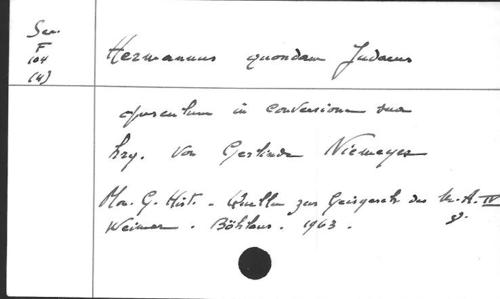 Sem.
F
104
(4)
Hermannus quondam Judaeus
opusculum in conversione sua
hrg. von Gerlinde Niemeyer
Mon. G. Hist. - Quellen zur Geisgesch des M.A. IV
Weimar. Böhlaus. 1963.